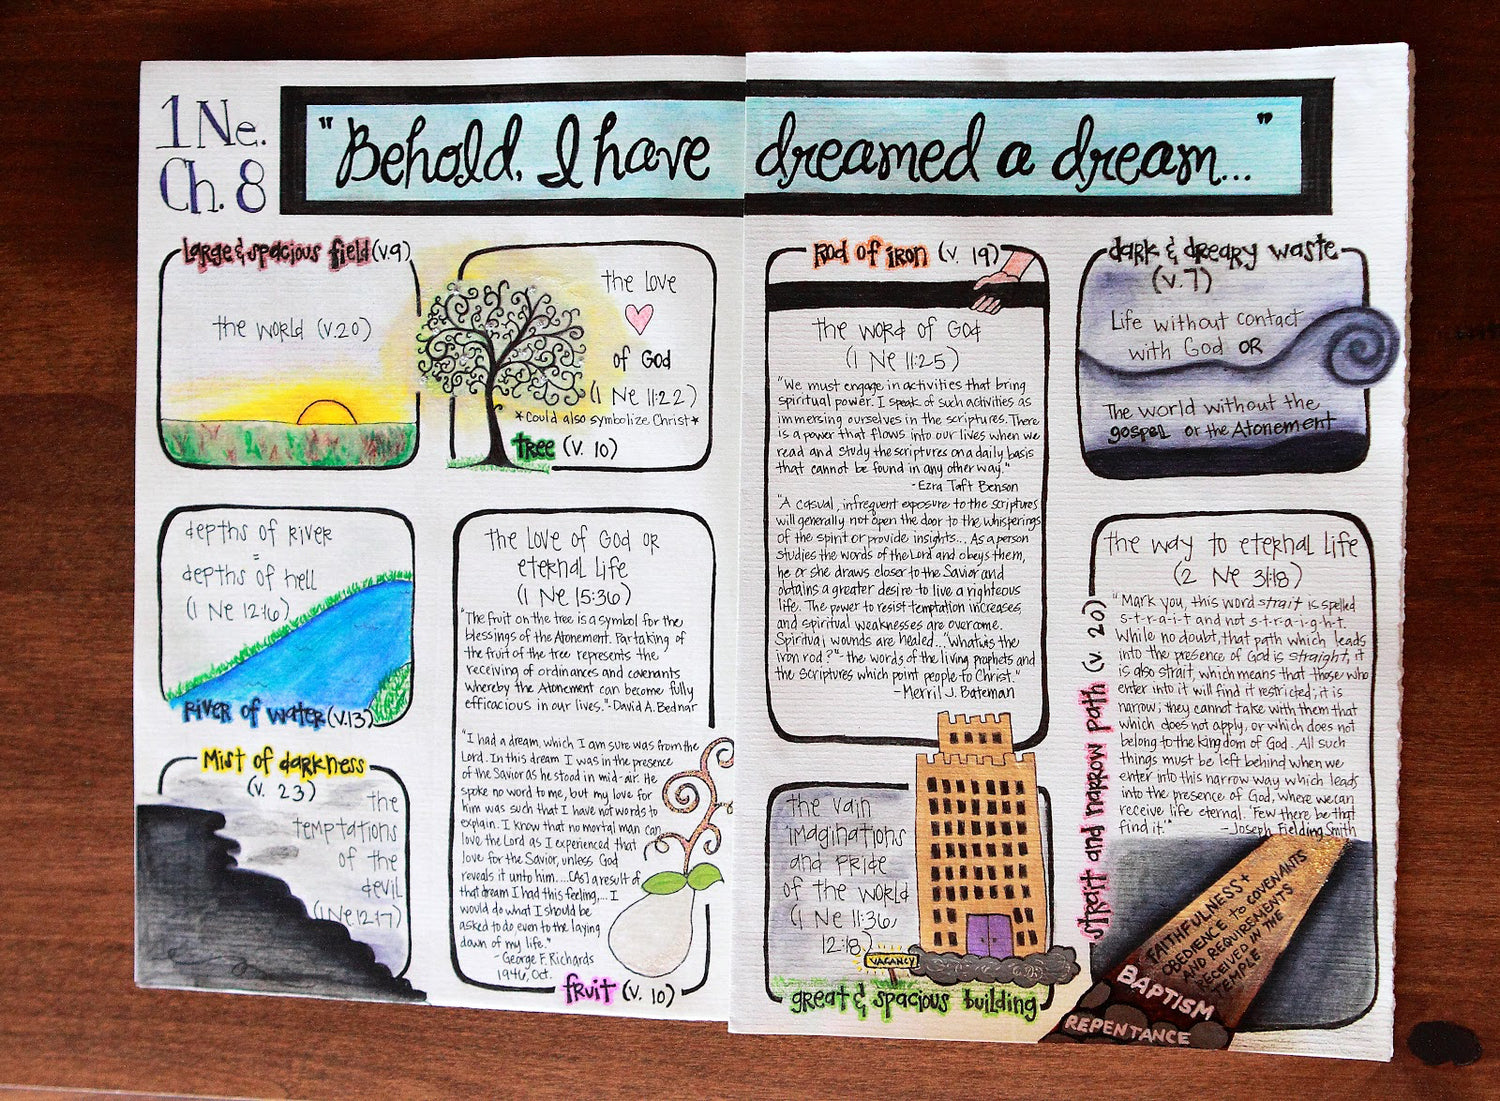 1 Ne.
Ch. 8
"Behold, I have dreamed a dream..."
Large & spacious field (v.9)
the world (v.20)
the love
of God
(1 Ne 11:22)
*Could also symbolize Christ*
tree (v. 10)
depths of river
=
depths of hell
(1 Ne 12:16)
River of water (v.13)
Mist of darkness
(v. 23)
the
temptations
of the
devil
(1 Ne 12:17)
the love of God or
eternal life
(1 Ne 15:36)
"The fruit on the tree is a symbol for the
blessings of the Atonement. Partaking of
the fruit of the tree represents the
receiving of ordinances and covenants
whereby the Atonement can become fully
efficacious in our lives."-David A. Bednar
"I had a dream, which I am sure was from the
Lord. In this dream I was in the presence
of the Savior as he stood in mid-air. He
spoke no word to me, but my love for
him was such that I have not words to
explain. I know that no mortal man can
love the Lord as I experienced that
love for the Savior, unless God
reveals it unto him....[As] a result of
that dream I had this feeling,... I
would do what I should be
asked to do, even to the laying
down of my life."
-George F. Richards
1946, Oct.
fruit (v. 10)
Rod of iron (v. 19)
the word of God
(1 Ne 11:25)
"We must engage in activities that bring
spiritual power. I speak of such activities as
immersing ourselves in the scriptures. There
is a power that flows into our lives when we
read and study the scriptures on a daily basis
that cannot be found in any other way."
-Ezra Taft Benson
"A casual, infrequent exposure to the scriptures
will generally not open the door to the whisperings
of the spirit or provide insights... As a person
studies the words of the Lord and obeys them,
he or she draws closer to the Savior and
obtains a greater desire to live a righteous
life. The power to resist temptation increases,
and spiritual weaknesses are overcome.
Spiritual wounds are healed..."What is the
iron rod?"-the words of the living prophets and
the scriptures which point people to Christ."
-Merril J. Bateman
the vain
imaginations
and pride
of the world
(1 Ne 11:36,
12:18)
VACANCY
great & spacious building
dark & dreary waste
(v.7)
Life without contact
with God OR
The world without the
gospel or the Atonement
strait and narrow path (v. 20)
the way to eternal life
(2 Ne 31:18)
"Mark you, this word strait is spelled
s-t-r-a-i-t and not s-t-r-a-i-g-h-t.
While no doubt, that path which leads
into the presence of God is straight, it
is also strait, which means that those who
enter into it will find it restricted; it is
narrow; they cannot take with them that
which does not apply, or which does not
belong to the kingdom of God. All such
things must be left behind when we
enter into this narrow way which leads
into the presence of God, where we can
receive life eternal. 'Few there be that
find it.'"
-Joseph Fielding Smith
FAITHFULNESS +
OBEDIENCE to COVENANTS
AND REQUIREMENTS
RECEIVED IN THE
TEMPLE
BAPTISM
REPENTANCE